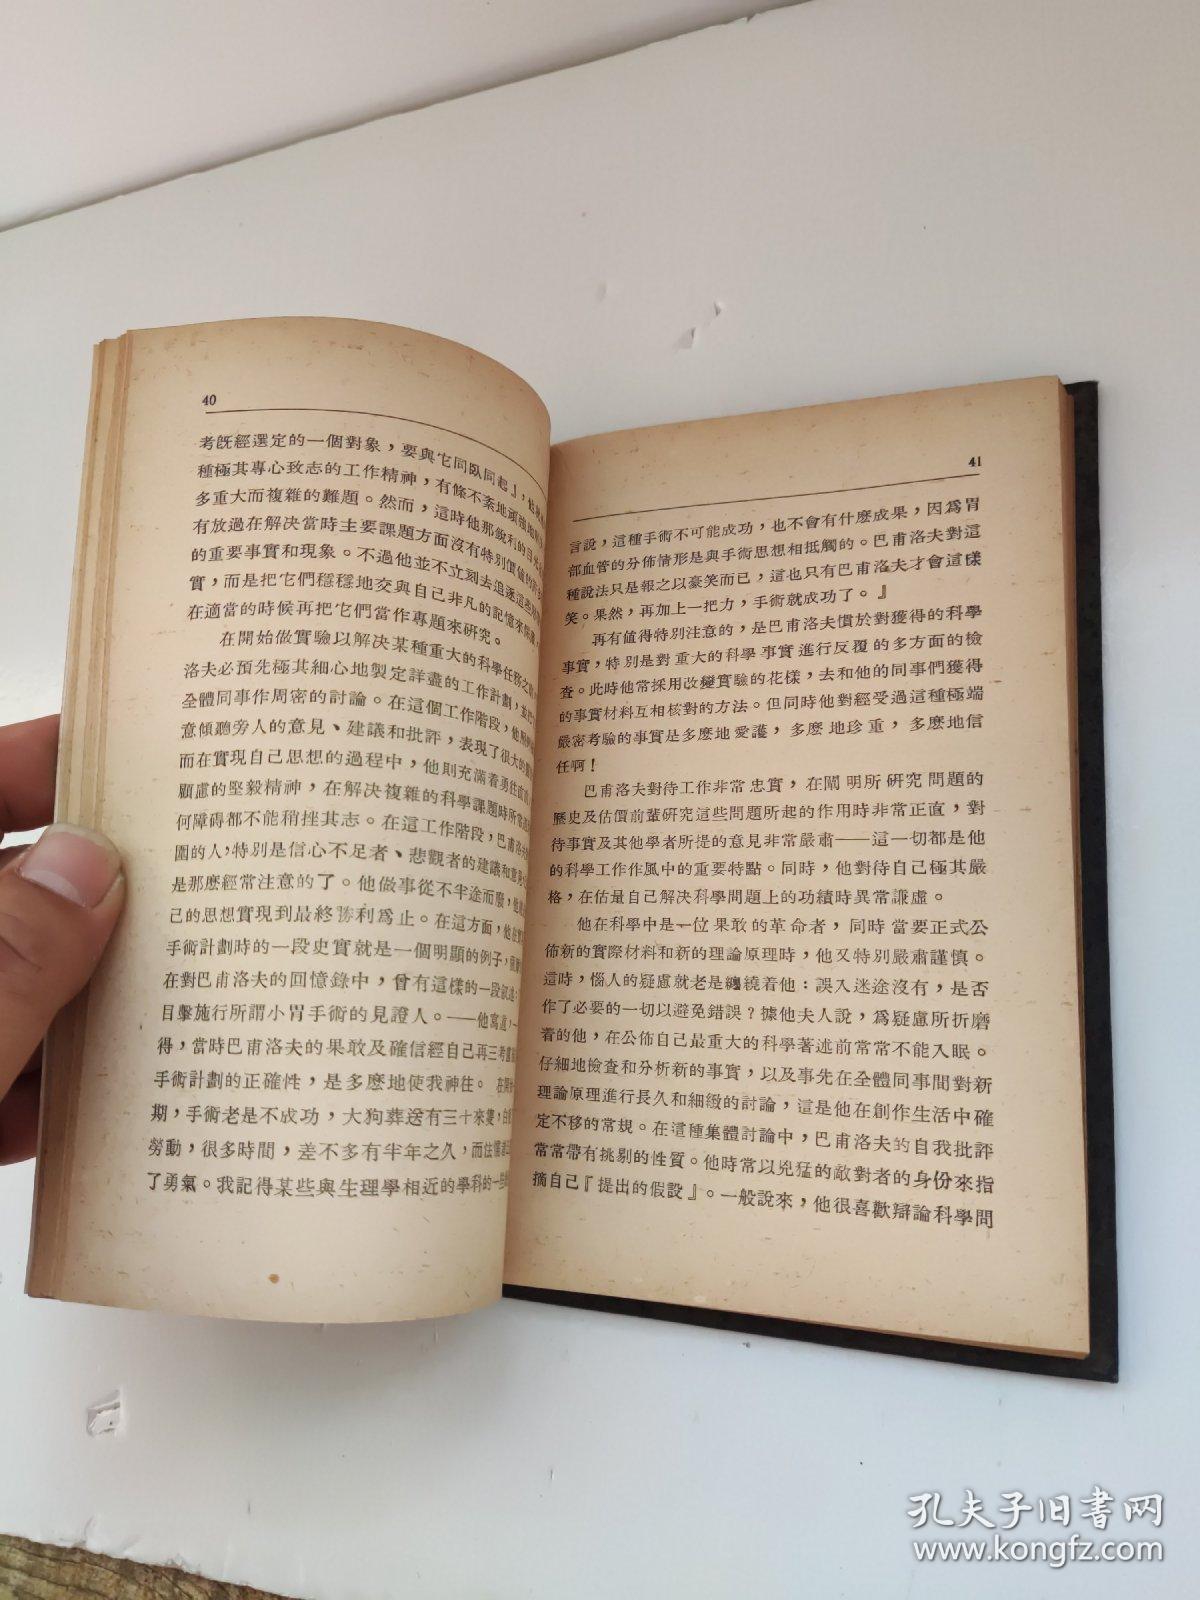 40
考旣經選定的一個對象，要與它同臥同起』，
種極其專心致志的工作精神，有條不紊地頑強地
多重大而複雜的難題。然而，這時他那銳利的目光
有放過在解決當時主要課題方面沒有特別價値的許多
的重要事實和現象。不過他並不立刻去追逐這些
實，而是把它們穩穩地交與自己非凡的記憶來保
在適當的時候再把它們當作專題來硏究。
在開始做實驗以解決某種重大的科學任務之前
洛夫必預先極其細心地製定詳盡的工作計劃，並把
全體同事作周密的討論。在這個工作階段，他
意傾聽旁人的意見、建議和批評，表現了很大的
而在實現自己思想的過程中，他則充滿着勇往直前
顧慮的堅毅精神，在解決複雜的科學課題時所常
何障碍都不能稍挫其志。在這工作階段，巴甫洛夫
圍的人，特別是信心不足者、悲觀者的建議和意見
是那麽經常注意的了。他做事從不半途而廢，他
己的思想實現到最終勝利爲止。在這方面，他在
手術計劃時的一段史實就是一個明顯的例子，
在對巴甫洛夫的回憶錄中，曾有這樣的一段叙述：
目擊施行所謂小胃手術的見證人。——他寫道，—
得，當時巴甫洛夫的果敢及確信經自己再三考慮
手術計劃的正確性，是多麽地使我神往。在開
期，手術老是不成功，大狗葬送有三十來隻，白
勞動，很多時間，差不多有半年之久，而
了勇氣。我記得某些與生理學相近的學科的一
41
言說，這種手術不可能成功，也不會有什麽成果，因爲胃
部血管的分佈情形是與手術思想相抵觸的。巴甫洛夫對這
種說法只是報之以豪笑而已，這也只有巴甫洛夫才會這樣
笑。果然，再加上一把力，手術就成功了。』
再有値得特別注意的，是巴甫洛夫慣於對獲得的科學
事實，特別是對重大的科學事實進行反覆的多方面的檢
查。此時他常採用改變實驗的花樣，去和他的同事們獲得
的事實材料互相核對的方法。但同時他對經受過這種極端
嚴密考驗的事實是多麽地愛護，多麽地珍重，多麽地信
任啊！
巴甫洛夫對待工作非常忠實，在闡明所硏究問題的
歷史及估價前輩硏究這些問題所起的作用時非常正直，對
待事實及其他學者所提的意見非常嚴肅——這一切都是他
的科學工作作風中的重要特點。同時，他對待自己極其嚴
格，在估量自己解決科學問題上的功績時異常謙虛。
他在科學中是一位果敢的革命者，同時當要正式公
佈新的實際材料和新的理論原理時，他又特別嚴肅謹慎。
這時，惱人的疑慮就老是纏繞着他：誤入迷途沒有，是否
作了必要的一切以避免錯誤？據他夫人說，爲疑慮所折磨
着的他，在公佈自己最重大的科學著述前常常不能入眠。
仔細地檢查和分析新的事實，以及事先在全體同事間對新
理論原理進行長久和細緻的討論，這是他在創作生活中確
定不移的常規。在這種集體討論中，巴甫洛夫的自我批評
常常帶有挑剔的性質。他時常以兇猛的敵對者的身份來指
摘自己『提出的假設』。一般說來，他很喜歡辯論科學問
孔夫子旧书网
www.kongfz.com